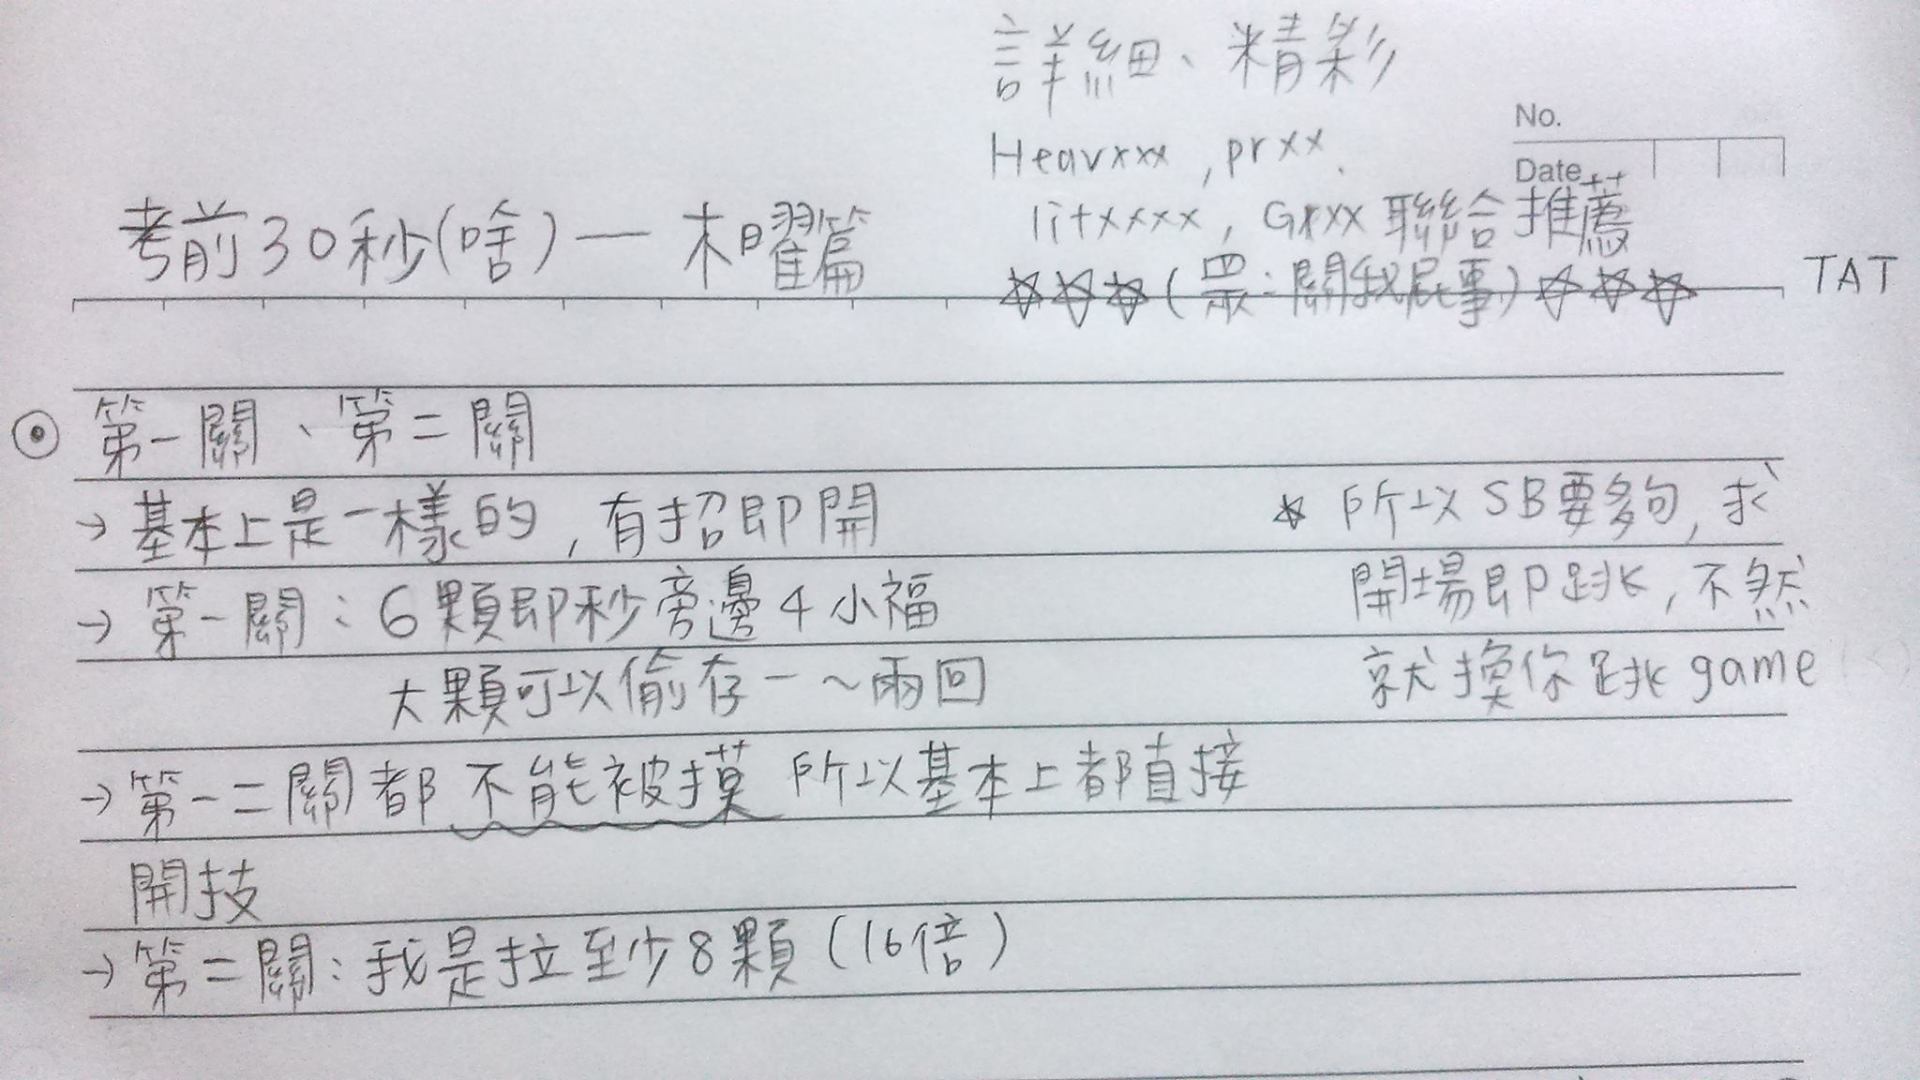 詳細、精彩
Heavxxx, prxx.
litxxxx, Grxx 聯合推薦
No.
Date
考前30秒(啥)— 木曜篇
☆☆☆(眾:關我屁事)☆☆☆ TAT
⊙ 第一關、第二關
→ 基本上是一樣的,有招即開
→ 第一關:6顆即秒旁邊4小福
大顆可以偷存一~兩回
→ 第一二關都不能被摸 所以基本上都直接
開技
→ 第二關:我是拉至少8顆(16倍)
☆ 所以SB要夠,求
開場即跳,不然
就換你跳game